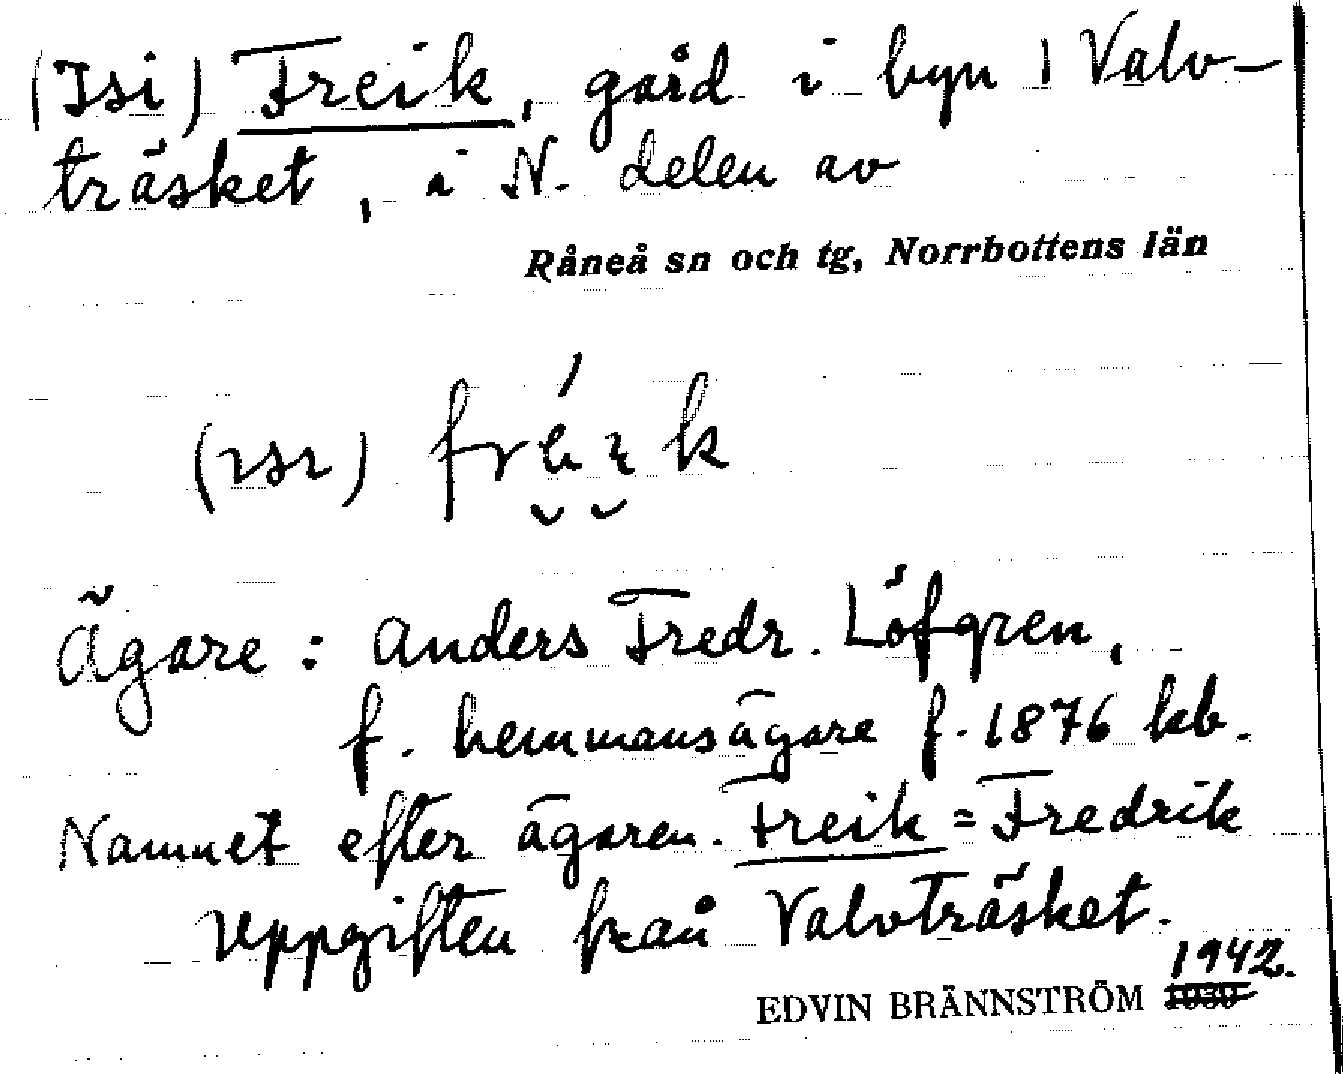 (Isi) Freik, gård i byn Valv-
träsket, i N. delen av
Råneå sn och tg, Norrbottens län
Ägare: Anders Fredr. Löfgren,
f. hemmansägare f. 1876 kb.
Namnet efter ägaren. Freik = Fredrik
Uppgiften från Valvträsket.
1942.
EDVIN BRÄNNSTRÖM 1939